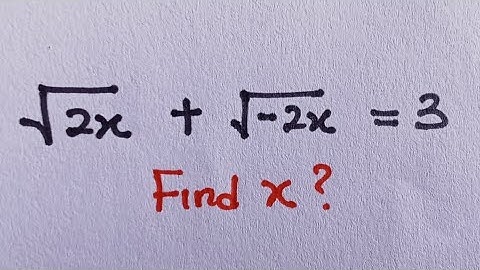 √2x + √-2x = 3
Find x?